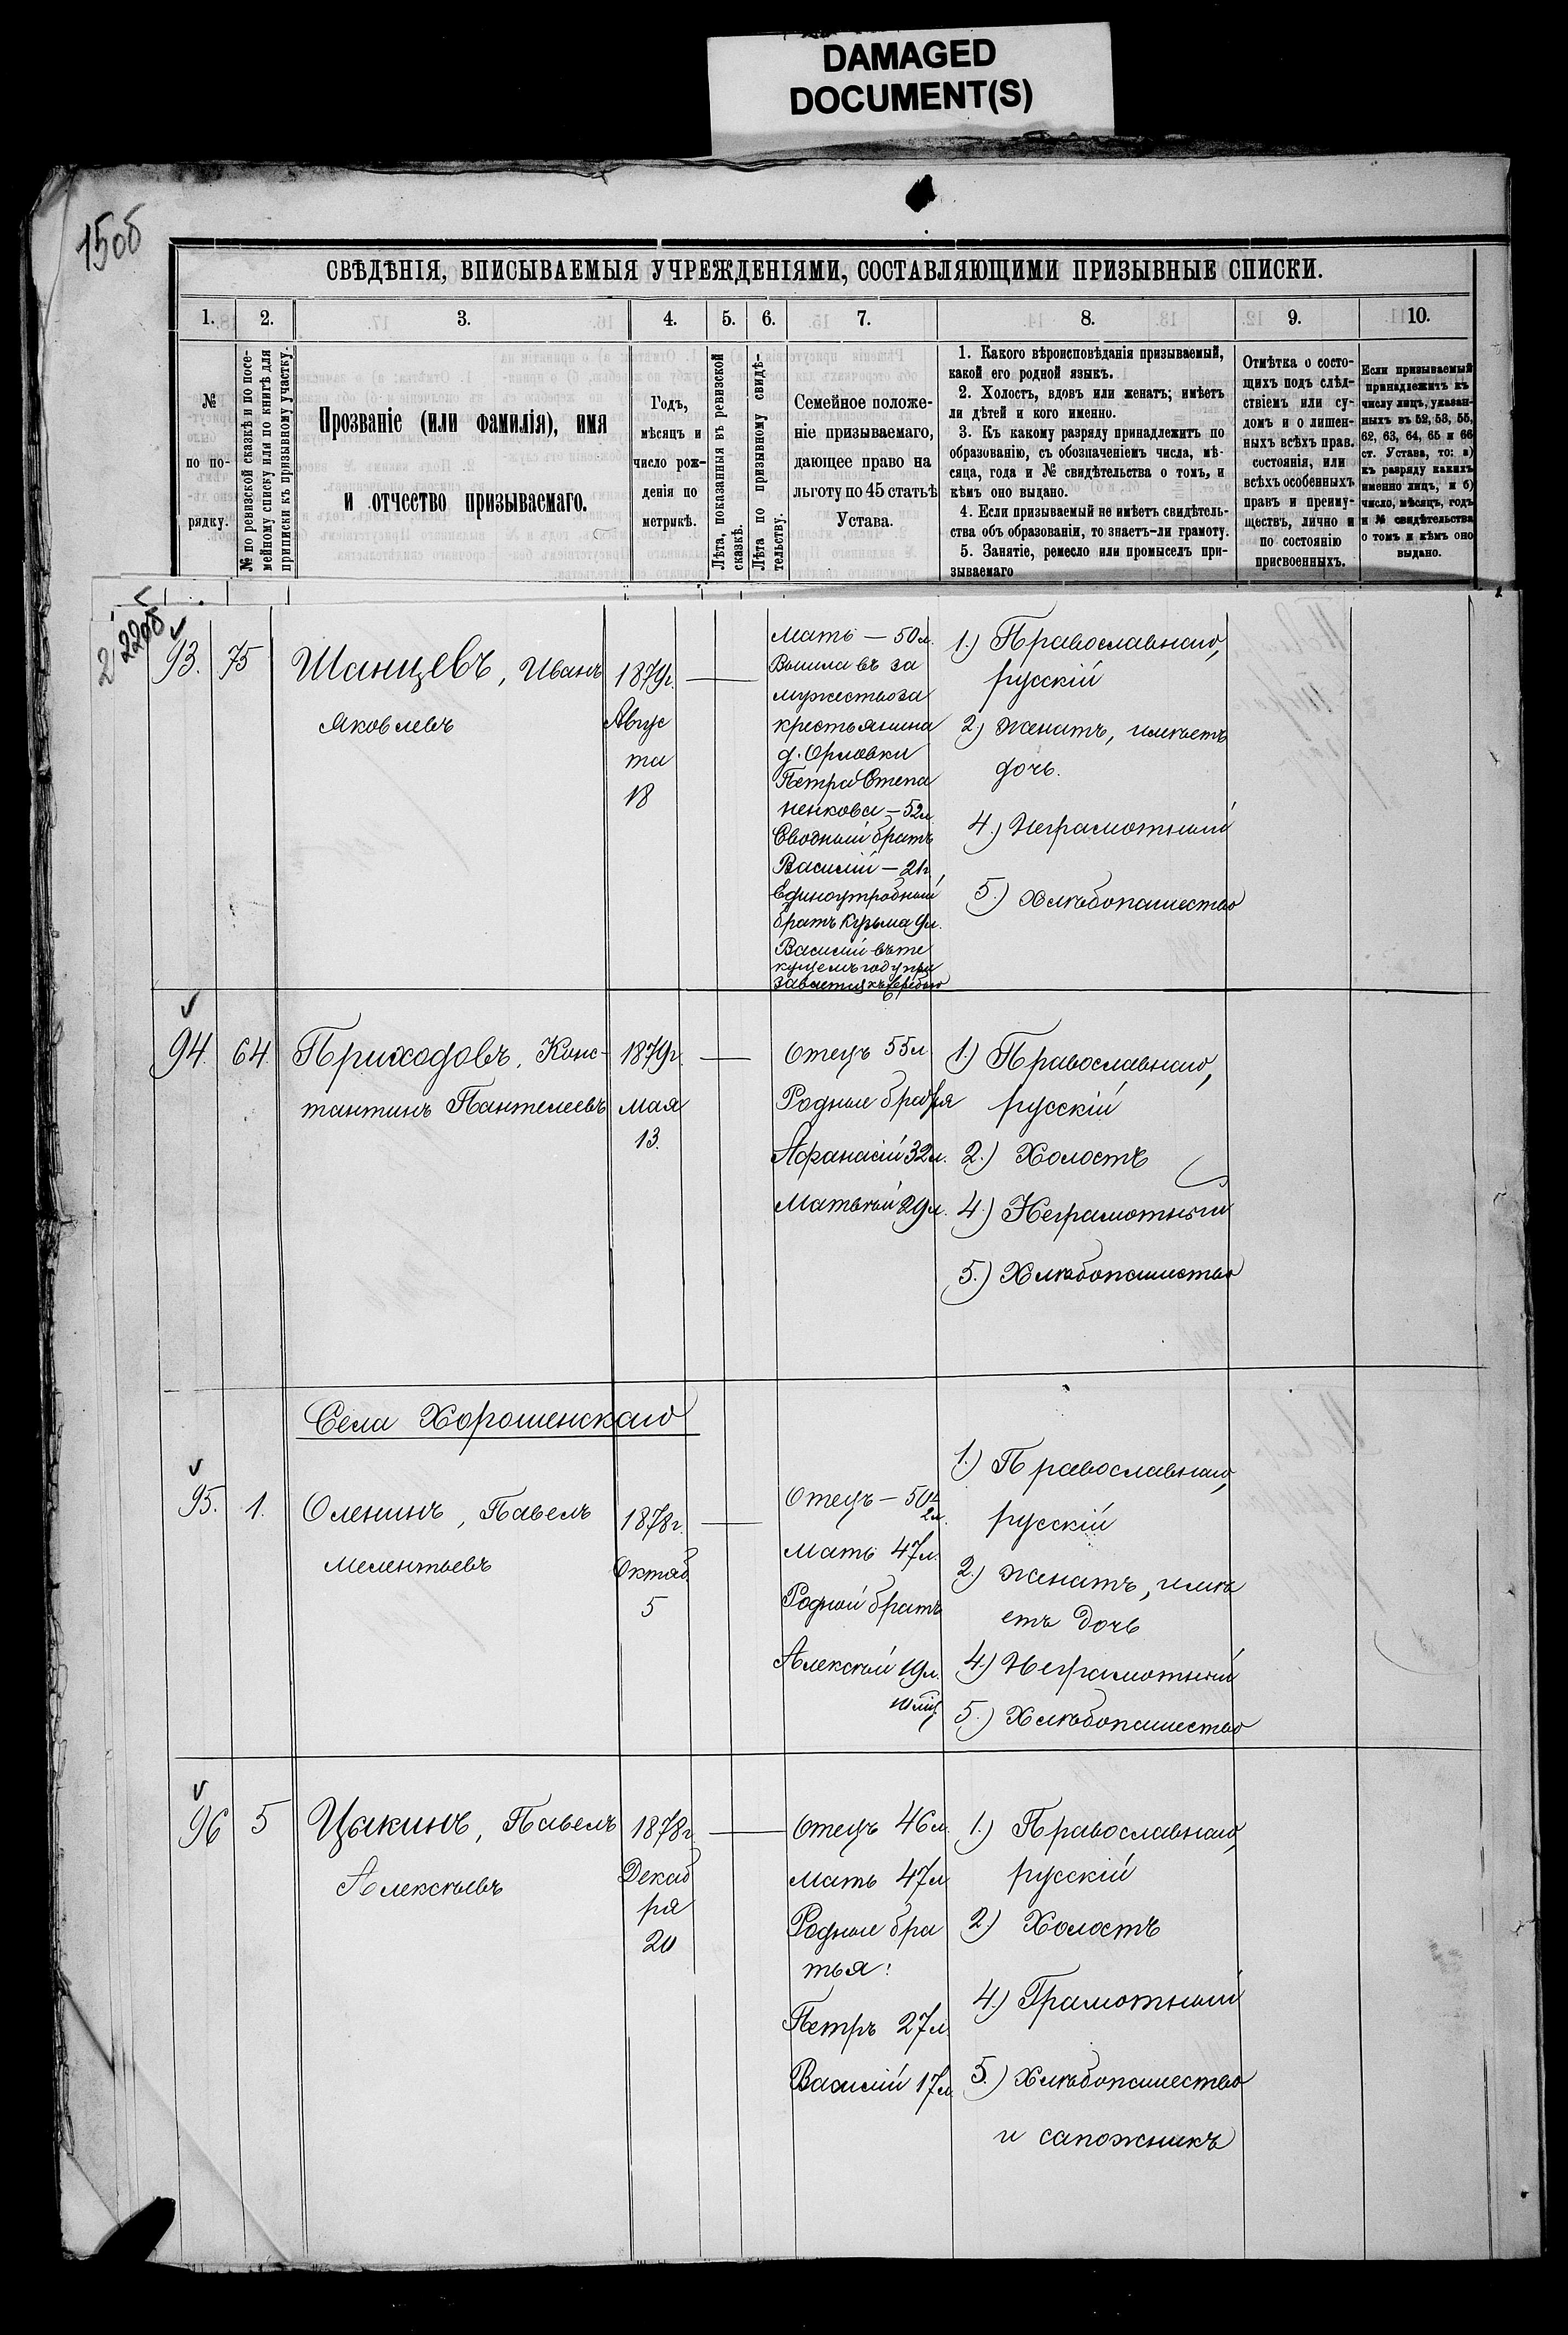 DAMAGED
DOCUMENT(S)
15об
СВѢДѢНІЯ, ВПИСЫВАЕМЫЯ УЧРЕЖДЕНІЯМИ, СОСТАВЛЯЮЩИМИ ПРИЗЫВНЫЕ СПИСКИ.
1. 2. 3. 4. 5. 6. 7. 8. 9. 10.
№
по по-
рядку.
№ по ревизской сказкѣ и по посе-
мейному списку или по книгѣ для
приписки къ призывному участку.
Прозваніе (или фамилія), имя
и отчество призываемаго.
Годъ,
мѣсяцъ и
число рож-
денія по
метрикѣ.
Лѣта, показанныя въ ревизской
сказкѣ.
Лѣта по призывному свидѣ-
тельству.
Семейное положе-
ніе призываемаго,
дающее право на
льготу по 45 статьѣ
Устава.
1. Какого вѣроисповѣданія призываемый,
какой его родной языкъ.
2. Холостъ, вдовъ или женатъ; имѣетъ
ли дѣтей и кого именно.
3. Къ какому разряду принадлежитъ по
образованію, съ обозначеніемъ числа, мѣ-
сяца, года и № свидѣтельства о томъ, и
кѣмъ оно выдано.
4. Если призываемый не имѣетъ свидѣтель-
ства объ образованіи, то знаетъ-ли грамоту.
5. Занятіе, ремесло или промыселъ при-
зываемаго
Отмѣтка о состо-
щихъ подъ слѣд-
ствіемъ или су-
домъ и о лишен-
ныхъ всѣхъ прав.
состоянія, или
всѣхъ особенныхъ
правъ и преиму-
ществъ, лично и
по состоянію
присвоенныхъ.
Если призываемый
принадлежитъ къ
числу лицъ, указан-
ныхъ въ 52, 53, 55,
62, 63, 64, 65 и 66
ст. Устава, то: а)
къ разряду какихъ
именно лицъ, и б)
число, мѣсяцъ, годъ
и № свидѣтельства
о томъ и кѣмъ оно
выдано.
22об
93. 75
Шанцевъ, Иванъ
Яковлевъ
1879г.
Авгус
та
18
Мать — 50л.
Вышла въ за
мужество за
крестьянина
д. Орловки
Петра Степа
ненкова — 52л.
Сводный братъ
Василій — 21г.
Единоутробный
братъ Кузьма 9л.
Василій въ те
кущемъ году при
зывается къ жребію
1.) Православнаго,
русскій
2.) Женатъ, имѣетъ
дочь.
4.) Неграмотный
5.) Хлѣбопашество
94. 64.
Приходовъ, Конс-
тантинъ Пантелеевъ
1879г.
Мая
13.
Отецъ 55л.
Родные братья
Афанасій 32л.
Матвѣй 29л.
1.) Православнаго,
русскій
2.) Холостъ
4.) Неграмотный
5.) Хлѣбопашество
Села Хорошенскаго
95. 1.
Оленинъ, Павелъ
Мелентьевъ
1878г.
Октяб.
5
Отецъ — 50
Мать 47л.
Родной братъ
Алексѣй 19л.
1.) Православнаго,
русскій
2.) Женатъ, имѣ
етъ дочь
4.) Неграмотный
5.) Хлѣбопашество
96 5
Цакинъ, Павелъ
Алексѣевъ
1878г.
Декаб
ря
20
Отецъ 46л.
Мать 47л.
Родные бра
тья:
Петръ 27л.
Василій 17л.
1.) Православнаго,
русскій
2.) Холостъ
4.) Грамотный
5.) Хлѣбопашество
и сапожникъ